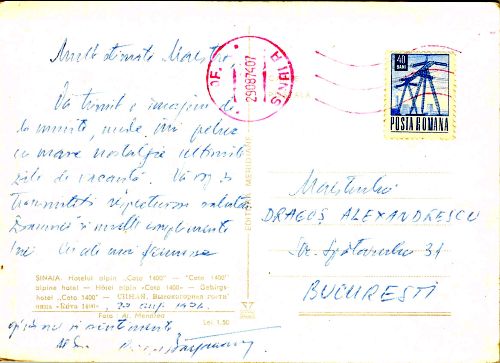 Mult stimate Maestre,
Vă trimit o imagine de
la munte, unde îmi petrec
cu mare nostalgie ultimele
zile de vacanță. Vă rog să
transmiteți respectuoase salutări
Doamnei și multe complimente
Cu cele mai
SINAIA. Hotelul alpin „Cota 1400" — "Cota 1400"
alpine hotel — Hôtel alpin «Cota 1400» — Gebirgs-
hotel „Cota 1400" — СИНАЯ. Высокогорная гости-
ница «Котa 1400»
Foto: Al. Mendrea
Lei 1,50
sentimente
EDITURA MERIDIANE
SINAIA
29087407
40
BANI
POSTA ROMANA
Maestrului
DRAGOȘ ALEXANDRESCU
Str. Spătarului 31
BUCUREȘTI